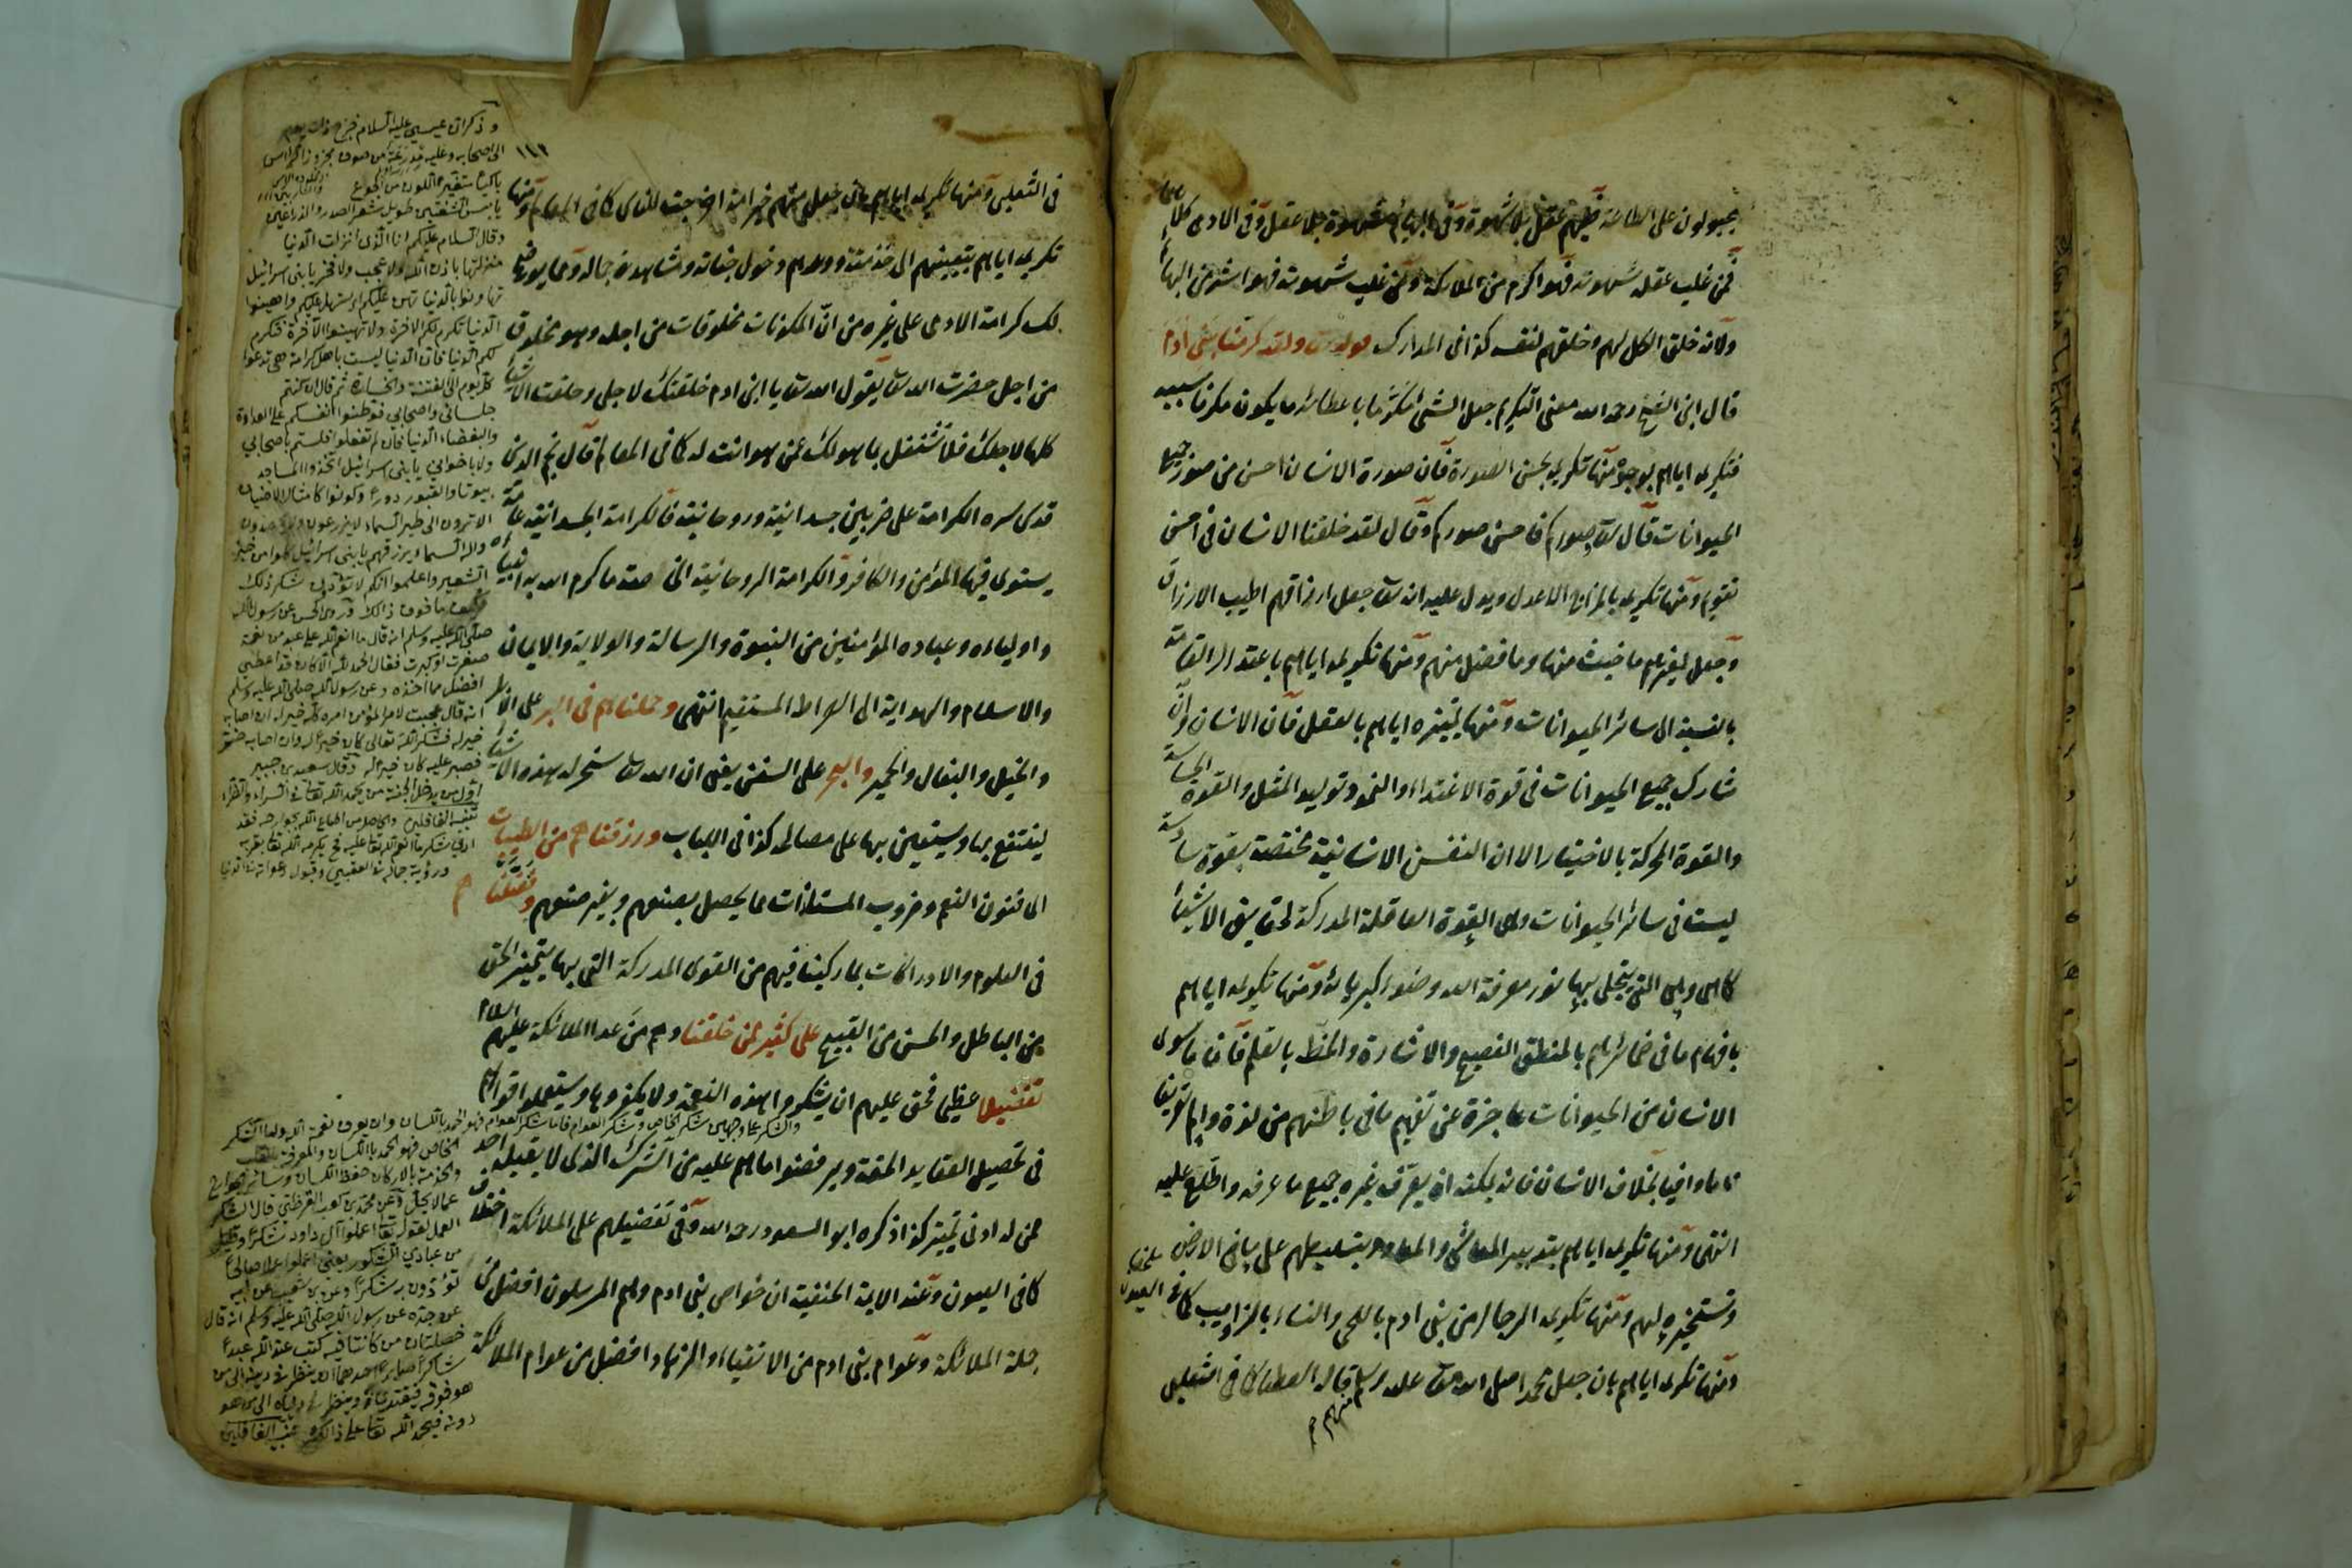 مجبولون على الطاعة ففيهم عقل بلا شهوة وفى البهائم شهوة بلا عقل وفى الادمى كلاهما
فمن غلب عقله شهوته فهو اكرم من الملائكة ومن غلب شهوته فهو اشر من البهائم
ولانه خلق الكل لهم وخلقهم لنفسه كذا فى المدارك ولقد كرمنا بنى ادم
قال ابن الشيخ رحمه الله معنى التكريم جعل الشئ مكرما باعطائه ما يكون مكرما بسببه
فتكريمه اياهم بوجوه منها تكريمه بحسن الصورة فان صورة الانسان احسن من صور جميع
الحيوانات قال تعا وصوركم فاحسن صوركم وقال لقد خلقنا الانسان فى احسن
تقويم ومنها تكريمه بالمزاج الاعدل ويدل عليه انه تعا جعل ارزاقهم اطيب الارزاق
وجعل لغيرهم ما خبث منها وما فضل منهم ومنها تكريمه اياهم باعتدال القامة
بالنسبة الى سائر الحيوانات ومنها تمييزه اياهم بالعقل فان الانسان وان
شارك جميع الحيوانات فى قوة الاغتذاء والنمو وتوليد المثل والقوة الحساسة
والقوة المحركة بالاختيار الا ان النفس الانسانية مختصة بقوة سادسة
ليست فى سائر الحيوانات وهى القوة العاقلة المدركة لحقايق الاشياء
كما هى وهى التى يتجلى بها نور معرفة الله وضوء كبريائه ومنها تكريمه اياهم
بافهام ما فى ضمائرهم بالمنطق الفصيح والاشارة والخط بالقلم فان ما سوى
الانسان من الحيوانات عاجزة عن تفهيم ما فى باطنهم من لذة والم تعريفا
تاما وافيا بخلاف الانسان فانه يمكنه ان يعرف غيره جميع ما عرفه واطلع عليه
انتهى ومنها تكريمه اياهم بتدبير المعاش والمعاد وبتسليطهم على ما فى الارض
وتسخيره لهم ومنها تكريمه الرجال من بنى ادم باللحى والنساء بالذوايب كما فى العيون
ومنها تكريمه اياهم بان جعل محمدا صلى الله تعا عليه وسلم منهم قاله العطا كما فى الثعلبى
١١١
فى الثعلبى ومنها تكريمه اياهم بان جعل منهم خير امة اخرجت للناس كما فى المعالم ومنها
تكريمه اياهم بتعيينهم الى خدمته ووعدهم دخول جناته ومشاهدة جماله ومما يعرفك
لك كرامة الادمى على غيره من ان المكونات مخلوقات من اجله وهو مخلوق
من اجل حضرت الله تعا يقول الله تعا يا ابن ادم خلقتك لاجلى وخلقت الاشياء
كلها لاجلك فلا تشتغل بما هو لك عمن هو انت له كما فى المعالم قال نجم الدين
قدس سره الكرامة على ضربين جسدانية وروحانية فالكرامة الجسدانية عامة
يستوى فيها المؤمن والكافر والكرامة الروحانية الخاصة ما كرم الله به انبياءه
واولياءه وعباده المؤمنين من النبوة والرسالة والولاية والايمان
والاسلام والهداية الى الصراط المستقيم انتهى وحملناهم فى البر على الابل
والخيل والبغال والحمير والبحر على السفن يعنى ان الله تعا سخر له هذه الاشياء
لينتفع بها ويستعين بها على مصالحه كذا فى اللباب ورزقناهم من الطيبات
اى فنون النعم وضروب المستلذات مما يحصل بصنعهم وبغير صنعهم وفضلناهم
فى العلوم والادراكات بما ركبنا فيهم من القوى المدركة التى بها يتميز الحق
من الباطل والحسن من القبيح على كثير ممن خلقنا وهم من عدا الملائكة عليهم السلام
تفضيلا عظيما فحق عليهم ان يشكروا هذه النعمة ولا يكفروها ويستعملوا قواهم
فى تحصيل العقايد الحقة ويرفضوا ما هم عليه من الشرك الذى لا يقبله احد
ممن له ادنى تمييز كذا ذكره ابو السعود رحمه الله وفى تفضيلهم على الملائكة اختلاف
كما فى العيون وعند الايمة الحنفية ان خواص بنى ادم وهم المرسلون افضل من
جملة الملائكة وعوام بنى ادم من الاتقياء والزهاد افضل من عوام الملائكة
وذكر ان عيسى عليه السلام خرج ذات يوم
الى اصحابه وعليه مدرعة من صوف
باكيا متغير اللون من الجوع
يابس الشفتين طويل شعر الصدر والذراعين
وقال السلام عليكم انا الذى انزلت الدنيا
منزلتها باذن الله ولا عجب ولا فخر يا بنى اسرائيل
تهاونوا بالدنيا تهن عليكم واهينوا
الدنيا تكرم لكم الاخرة ولا تهينوا الاخرة فتكرم
لكم الدنيا فان الدنيا ليست باهل كرامة هى تدعوا
كل يوم الى الفتنة والخسارة ثم قال ان كنتم
جلسائى واصحابى فوطنوا انفسكم على العداوة
والبغضاء للدنيا فان لم تفعلوا فلستم باصحابى
ولا باخوانى يا بنى اسرائيل اتخذوا المساجد
بيوتا والقبور دورا وكونوا كامثال الاضياف
الا ترون الى طير السماء لا يزرعون ولا يحصدون
واله السماء يرزقهم يا بنى اسرائيل كلوا من خبز
الشعير واعلموا انكم لا تؤدون شكر ذلك
فكيف ما فوق ذالك وروى الحسن عن رسول الله
صلى الله عليه وسلم انه قال ما انعم الله على عبد من نعمة
صغرت او كبرت فقال الحمد لله الا كان قد اعطى
افضل مما اخذه وعن رسول الله صلى الله عليه وسلم
انه قال عجبت لامر المؤمن امره كله خير له ان اصابه
خير له فشكر الله تعالى كان خيرا له وان اصابه ضر
فصبر عليه كان خيرا له وقال سعيد بن جبير
اول من يدخل الجنة من يحمد الله تعا فى السراء والضراء
تنبيه الغافلين
والشكر على وجهين شكر الخاص وشكر العوام فاما شكر العوام فهو الحمد باللسان وان يعرف نعمة الله واما شكر
الخاص فهو الحمد باللسان والمعرفة بالقلب
والخدمة بالاركان وحفظ اللسان وسائر الجوارح
عما لا يحل وعن محمد بن كعب القرظى قال الشكر
العمل لقوله تعا اعملوا آل داود شكرا وقليل
من عبادى الشكور يعنى اعملوا عملا صالحا
تؤدون به شكرا وعن عمرو بن شعيب عن ابيه
عن جده عن رسول الله صلى الله عليه وسلم انه قال
خصلتان من كانتا فيه كتب عند الله عبدا
شاكرا صابرا احدهما ان ينظر فى دينه الى من
هو فوقه فيقتدى به وينظر فى دنياه الى من هو
دونه فيحمد الله تعا على ذالك تنبيه الغافلين